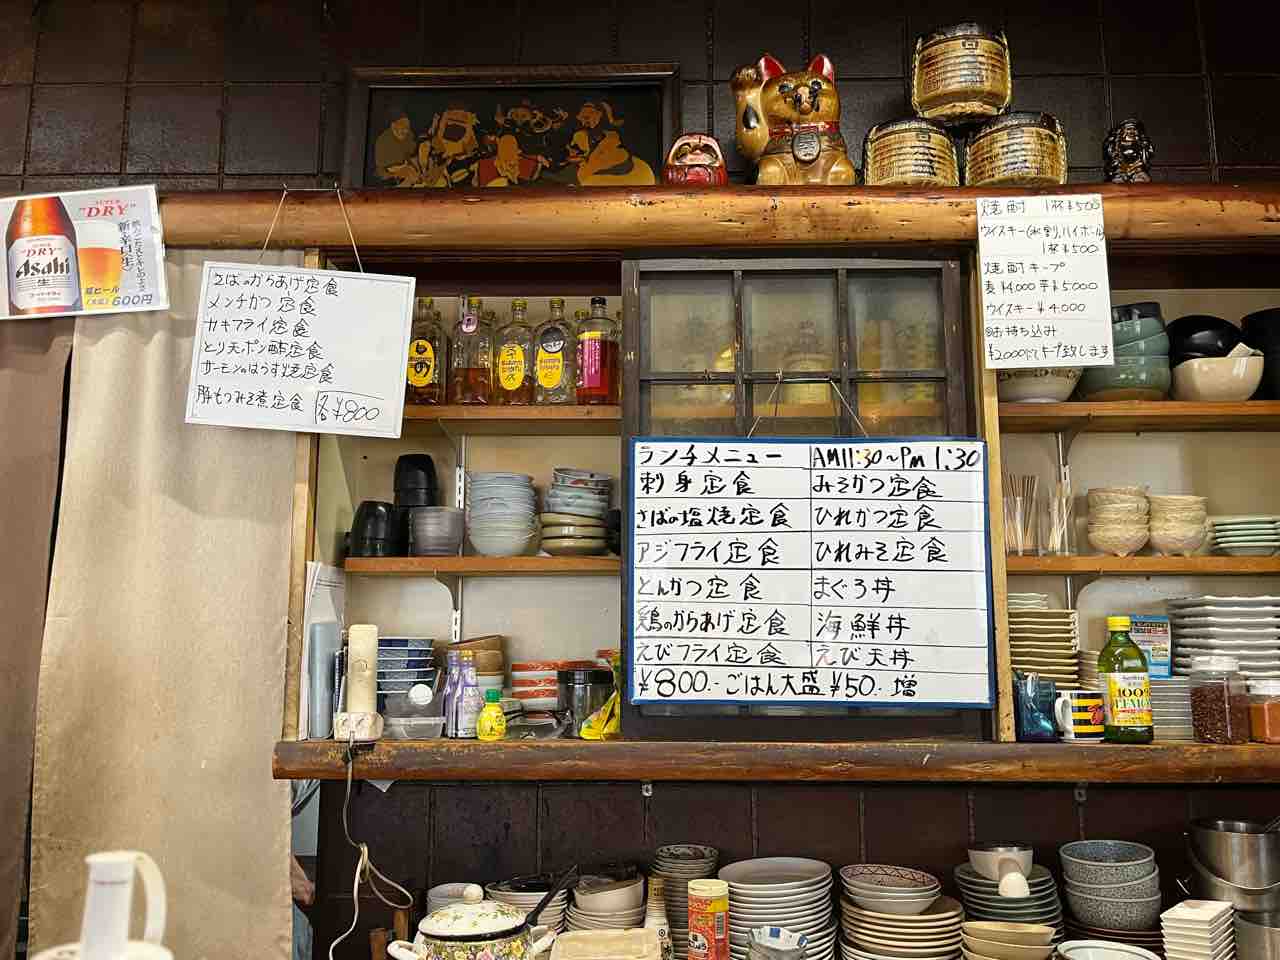 SUPER
"DRY"
Asahi
生
新・辛口〈生〉
瓶ビール
(大瓶) 600円
さばのからあげ定食
メンチかつ定食
カキフライ定食
とり天ポン酢定食
サーモンのはらす焼定食
豚もつみそ煮定食 各¥800
ランチメニュー AM11:30~PM1:30
刺身定食 みそかつ定食
さばの塩焼定食 ひれかつ定食
アジフライ定食 ひれみそ定食
とんかつ定食 まぐろ丼
鶏のからあげ定食 海鮮丼
えびフライ定食 えび天丼
¥800.- ごはん大盛 ¥50.- 増
焼酎 1杯¥500
ウイスキー(水割り、ハイボール)
1杯¥500
焼酎キープ
麦¥4,000 芋¥5,000
ウイスキー¥4,000
◎お持ち込み
¥2000にてキープ致します
100%
LEMON